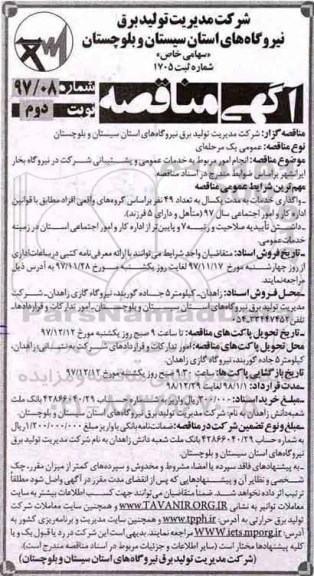 شرکت مدیریت تولید برق
نیروگاه‌های استان سیستان و بلوچستان
«سهامی خاص»
شماره ثبت ۱۷۰۵
آگهی مناقصه
شماره ۹۷/۰۸
نوبت دوم
مناقصه گزار: شرکت مدیریت تولید برق نیروگاه‌های استان سیستان و بلوچستان
نوع مناقصه: عمومی یک مرحله‌ای
موضوع مناقصه: انجام امور مربوط به خدمات عمومی و پشتیبانی شرکت در نیروگاه بخار
ایرانشهر براساس ضوابط مندرج در اسناد مناقصه
مهم‌ترین شرایط عمومی مناقصه
ـ واگذاری خدمات به مدت یکسال به تعداد ۴۹ نفر براساس گروه‌های واقعی افراد مطابق با قوانین
اداره کار و امور اجتماعی سال ۹۷ (متأهل و دارای ۵ فرزند).
ـ داشتن تأییدیه صلاحیت و رتبه ۷ و پایین‌تر از اداره کار و امور اجتماعی استان در زمینه
خدمات عمومی.
ـ تاریخ فروش اسناد: متقاضیان واجد شرایط می‌توانند با ارائه معرفی نامه کتبی در ساعات اداری
از روز چهارشنبه مورخ ۹۷/۱۱/۱۷ لغایت روز یکشنبه مورخ ۹۷/۱۱/۲۸ به آدرس ذیل
مراجعه نمایند.
ـ محل فروش اسناد: زاهدان ـ کیلومتر ۵ جاده گوربند، نیروگاه گازی زاهدان ـ شرکت
مدیریت تولید برق نیروگاه‌های استان سیستان و بلوچستان ـ امور تدارکات و قراردادها ـ
ـ تاریخ تحویل پاکت‌های مناقصه: تا ساعت ۹ صبح روز یکشنبه مورخ ۹۷/۱۲/۱۲
محل تحویل پاکت‌های مناقصه: امور تدارکات و قراردادهای شرکت به نشانی زاهدان،
کیلومتر ۵ جاده گوربند، نیروگاه گازی زاهدان
ـ تاریخ بازگشایی پاکت‌ها: ساعت ۹:۳۰ صبح روز یکشنبه مورخ ۹۷/۱۲/۱۲
ـ مدت قرارداد: ۹۸/۱/۱ لغایت ۹۸/۱۲/۲۹
ـ مبلغ خرید اسناد: ۲۰۰/۰۰۰ ریال واریز به شماره حساب ۴۲۸۶۶۰۴۰/۲۹ بانک ملت
شعبه دانش زاهدان به نام: شرکت مدیریت تولید برق نیروگاه‌های استان سیستان و بلوچستان.
ـ مبلغ و نوع تضمین شرکت در مناقصه: ضمانت‌نامه بانکی یا واریز مبلغ ۱/۲۰۰/۰۰۰/۰۰۰ ریال
به شماره حساب ۴۲۸۶۶۰۴۰/۲۹ بانک ملت شعبه دانش زاهدان به نام شرکت مدیریت تولید برق
نیروگاه‌های استان سیستان و بلوچستان.
ـ به پیشنهادهای فاقد سپرده یا امضاء مشروط و مخدوش و سپرده‌های کمتر از میزان مقرر، چک
شخصی و نظایر آن و پیشنهادهایی که پس از انقضای مدت مقرر در آگهی واصل شود مطلقاً
ترتیب اثر داده نخواهد شد. ضمناً متقاضیان می‌توانند جهت کسب اطلاعات بیشتر به سایت
معاملات توانیر به نشانی WWW.TAVANIR.ORG.IR و همچنین سایت معاملات شرکت
تولید برق حرارتی به آدرس: www.tpph.ir و همچنین سایت مدیریت و برنامه‌ریزی کشور به
آدرس: WWW.iets.mporg.ir مراجعه نمایند. بدیهی است این شرکت در رد یا قبول یک و یا
کلیه پیشنهادها مختار است (سایر اطلاعات و جزئیات مربوط در اسناد مناقصه مندرج است).
(شرکت مدیریت تولید برق نیروگاه‌های استان سیستان و بلوچستان)